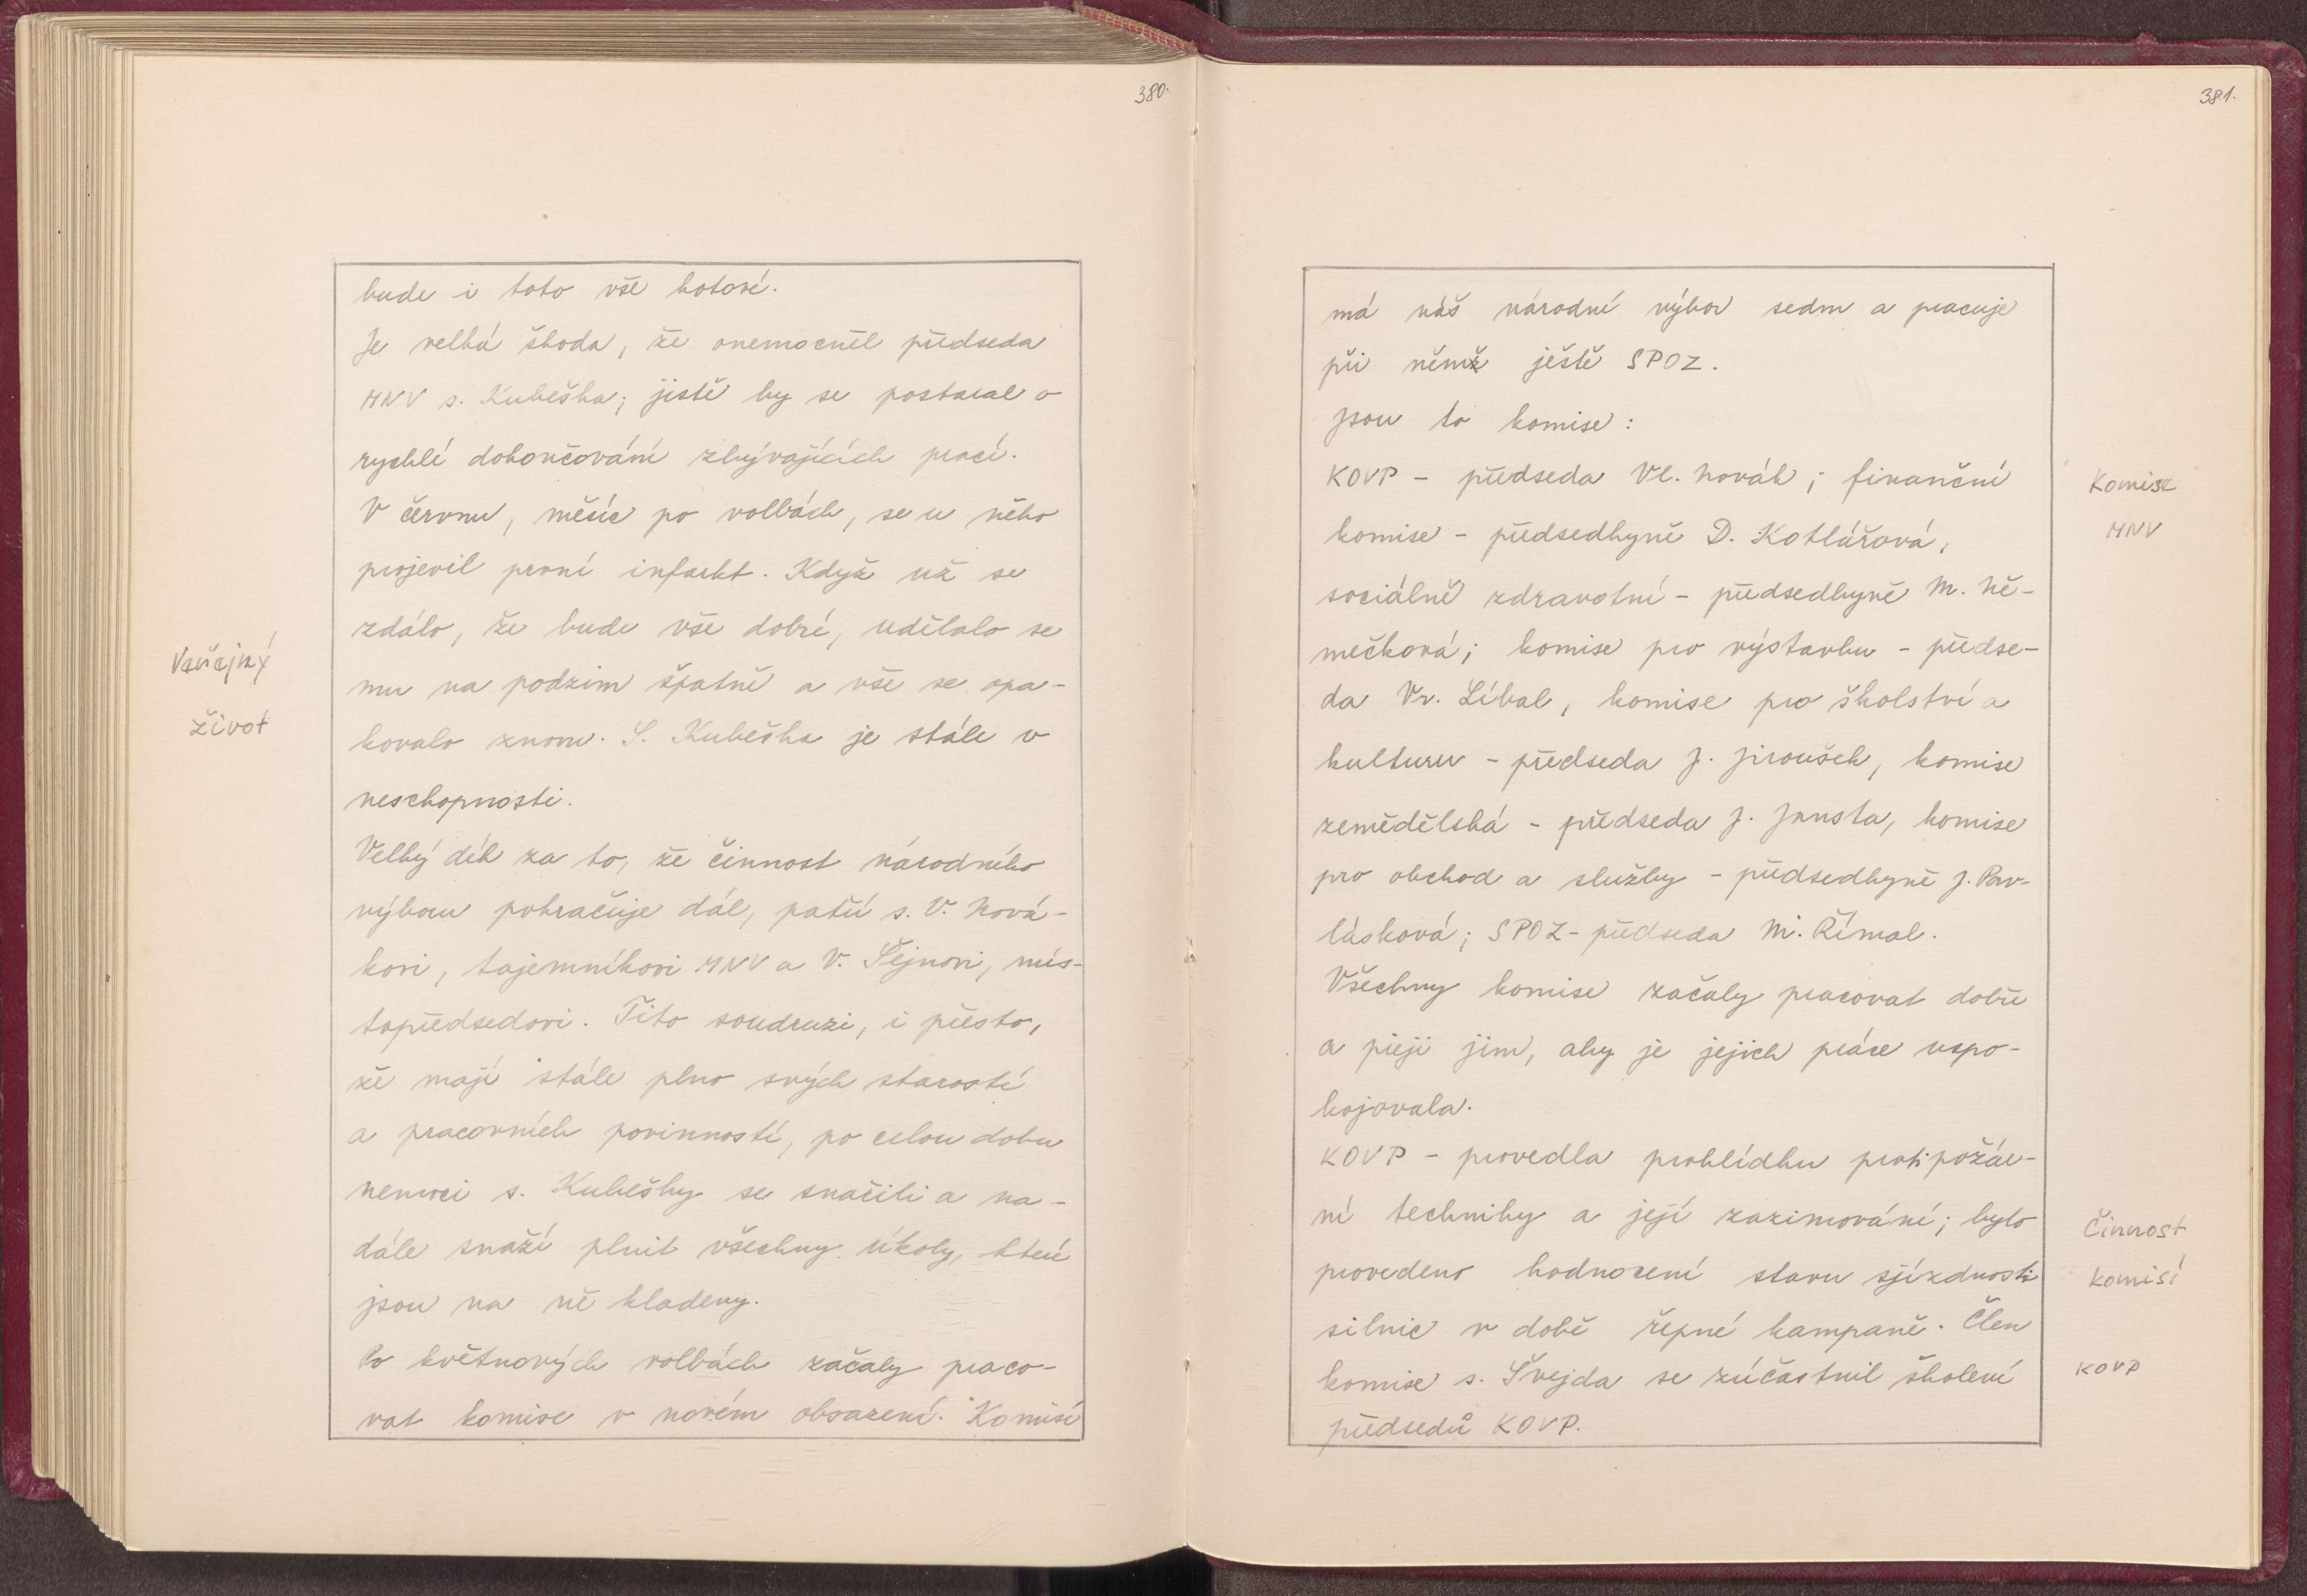 380.
bude i toto vše hotové.
Je velká škoda, že onemocněl předseda
MNV s. Kubeška; jistě by se postaral o
rychlé dokončování zbývajících prací.
V červnu, měsíc po volbách, se u něho
projevil první infarkt. Když už se
zdálo, že bude vše dobré, udělalo se
mu na podzim špatně a vše se opa-
kovalo znovu. S. Kubeška je stále v
neschopnosti.
Veřejný
život
Velký dík za to, že činnost národního
výboru pokračuje dál, patří s. V. Nová-
kovi, tajemníkovi MNV a V. Šejnovi, mís-
topředsedovi. Tito soudruzi, i přesto,
že mají stále plno svých starostí
a pracovních povinností, po celou dobu
nemoci s. Kubešky se snažili a na-
dále snaží plnit všechny úkoly, které
jsou na ně kladeny.
Po květnových volbách začaly praco-
vat komise v novém obsazení. Komisí
381.
má náš národní výbor sedm a pracuje
při němž ještě SPOZ.
Jsou to komise:
KOVP - předseda Vl. Novák; finanční
komise - předsedkyně D. Kotlářová,
sociálně zdravotní - předsedkyně M. Ně-
mečková; komise pro výstavbu - předse-
da Vr. Líbal, komise pro školství a
kulturu - předseda J. Jiroušek, komise
zemědělská - předseda J. Jansta, komise
pro obchod a služby - předsedkyně J. Pav-
lásková; SPOZ - předseda M. Římal.
Všechny komise začaly pracovat dobře
a přeji jim, aby je jejich práce uspo-
kojovala.
KOVP - provedla prohlídku protipožár-
ní techniky a její zazimování; bylo
provedeno hodnocení stavu sjízdnosti
silnic v době řepné kampaně. Člen
komise s. Švejda se zúčastnil školení
předsedů KOVP.
Komise
MNV
Činnost
komisí
KOVP